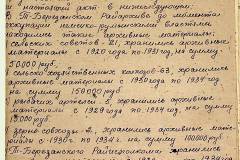 настоящий акт в нижеследующем:
В Т-Березанском Райархиве до момента
оккупации немецко-фашистскими властями
находились такие архивные материалы:
сельских советов - 21, хранились архивные
материалы с 1920 года по 1931 год, на сумму
50000 руб.
сельскохозяйственных колхозов-63, хранились
архивные материалы с 1930 по 1934 год
на сумму 150000 руб.
рыбачих артелей 5, хранились архивные
материалы с 1929 года по 1934 год, на сумму
5000 руб.
зерно совхозы - 2, хранились архивные мате-
риалы с 1930 по 1934 г. на сумму 100000 руб.
Т-Березанского Райисполкома хранились
1934 год